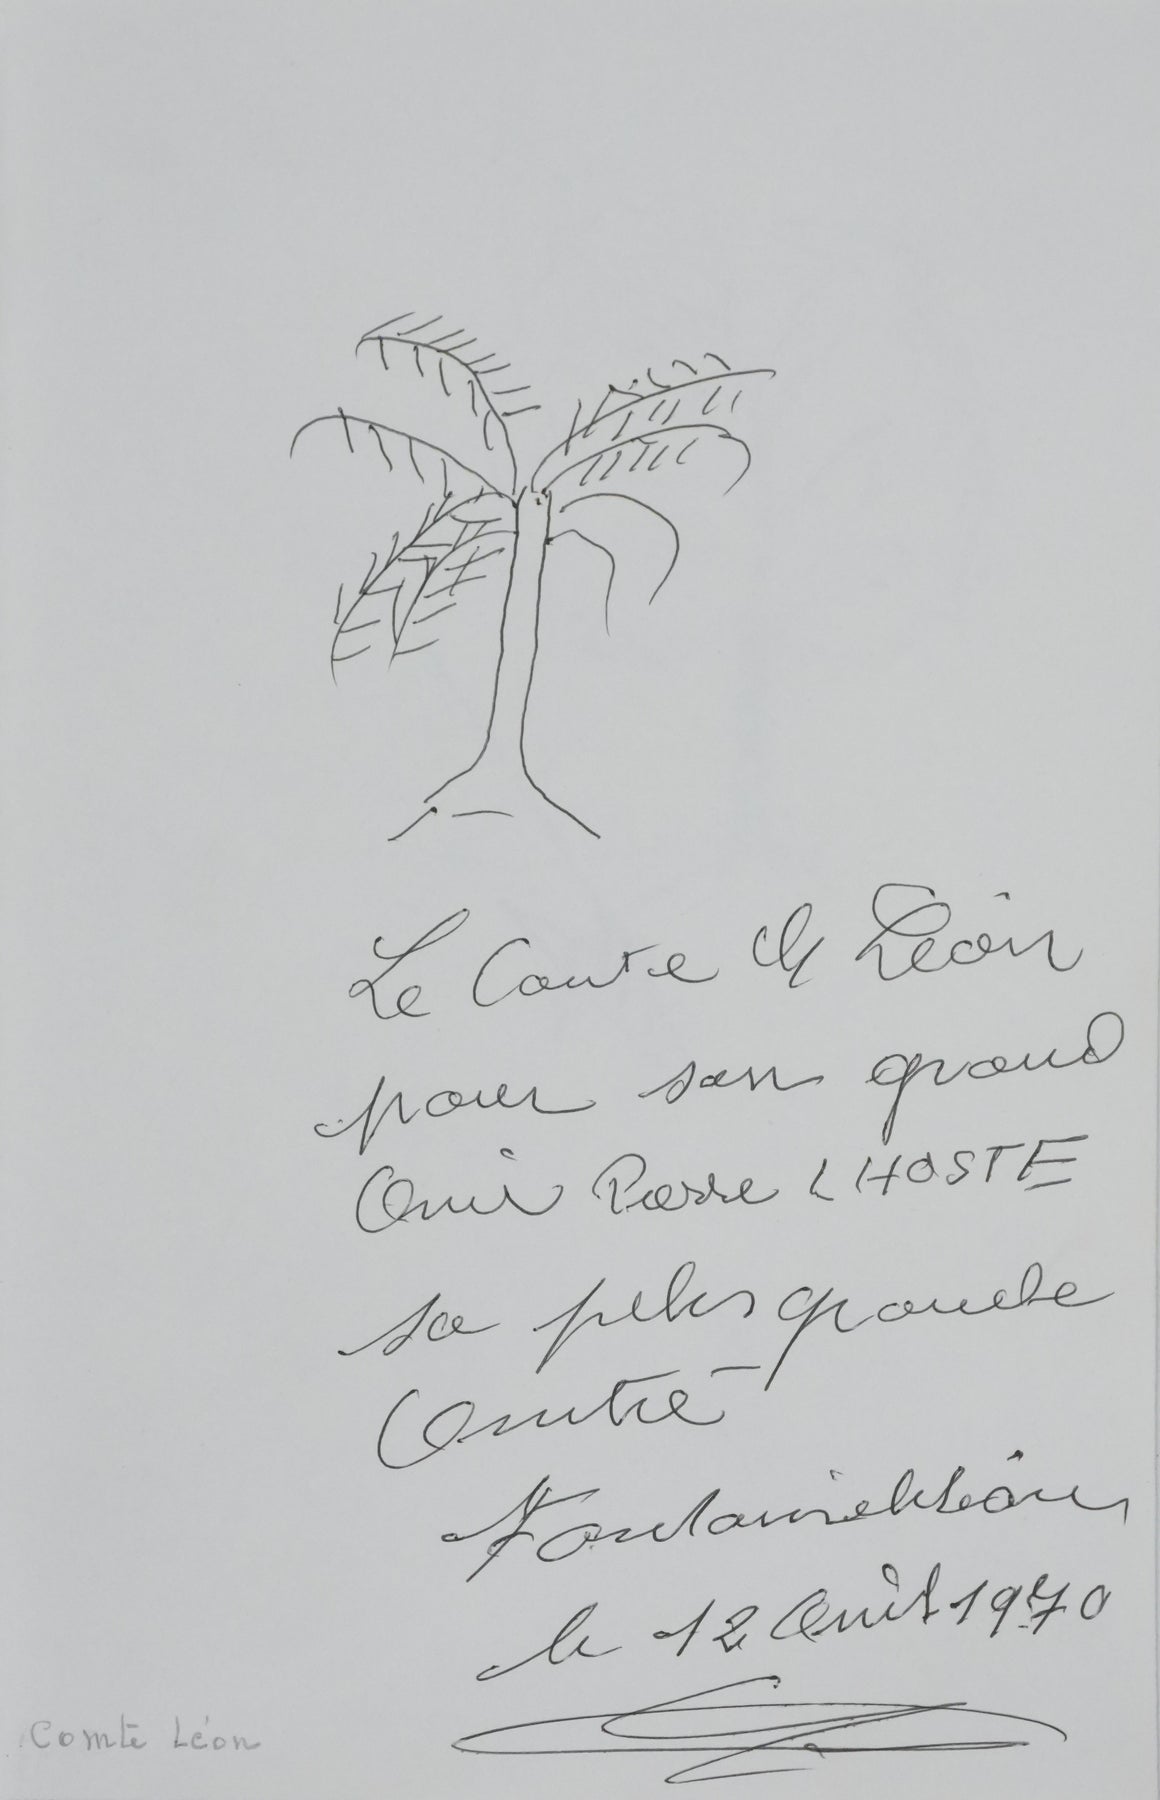 Le Comte Ch Léon
pour son grand
Ami Pierre LHOSTE
sa plus grande
Amitié
Fontainebleau,
le 12 Août 1970
Comte Léon